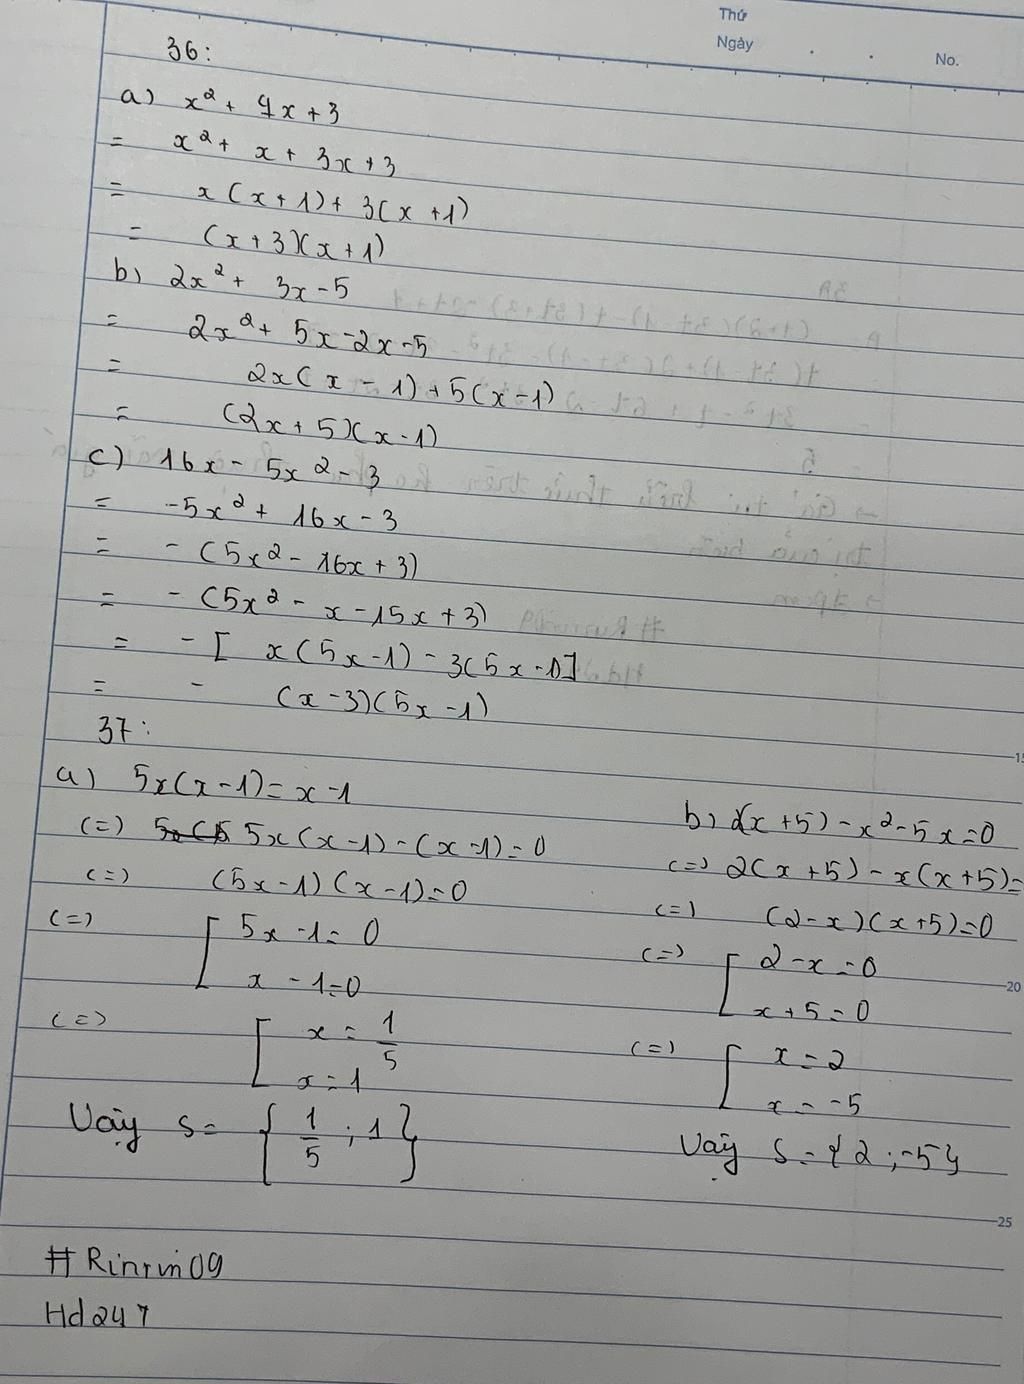 Thứ
Ngày . .
No.
36:
a) x² + 4x + 3
= x² + x + 3x + 3
= x(x + 1) + 3(x + 1)
= (x + 3)(x + 1)
b) 2x² + 3x - 5
= 2x² + 5x - 2x - 5
= 2x(x - 1) + 5(x - 1)
= (2x + 5)(x - 1)
c) 16x - 5x² - 3
= -5x² + 16x - 3
= - (5x² - 16x + 3)
= - (5x² - x - 15x + 3)
= - [ x(5x - 1) - 3(5x - 1)]
= - (x - 3)(5x - 1)
37:
15
a) 5x(x - 1) = x - 1
(=) 5x(x - 1) - (x - 1) = 0
(=) (5x - 1)(x - 1) = 0
(=) [ 5x - 1 = 0
x - 1 = 0
(=) [ x = 1/5
x = 1
Vậy S = { 1/5 ; 1 }
b) 2(x + 5) - x² - 5x = 0
(=) 2(x + 5) - x(x + 5) =
(=) (2 - x)(x + 5) = 0
(=) [ 2 - x = 0
20
x + 5 = 0
(=) [ x = 2
x = -5
Vậy S = { 2 ; -5 }
25
# Rinrin09
Hd247